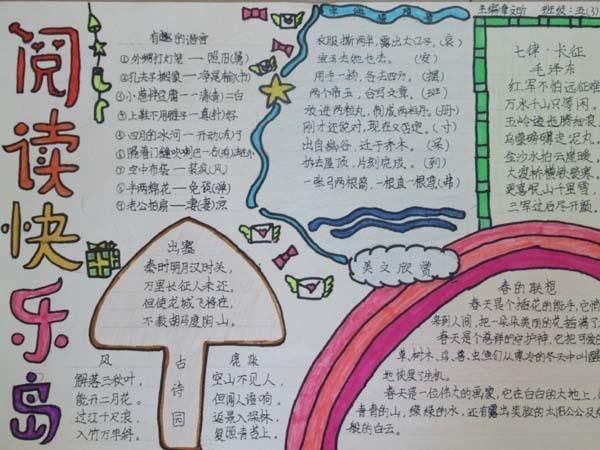 阅读快乐岛
有趣的谐音
①外甥打灯笼——照旧(舅)
②孔夫子搬家——净是输(书)
③小葱拌豆腐——清(青)二白
④上鞋不用锥子——真(针)好
⑤四月的冰河——开动(冻)了
⑥隔着门缝吹喇叭——名(鸣)声在外
⑦空中布袋——装疯(风)
⑧半两棉花——免谈(弹)
⑨老公拍扇——凄(妻)凉
衣服撕两半,露出大口子。(哀)
宝玉去她也去。(安)
用手一挪,各去四方。(搬)
两个帝王,合写文章。(班)
放进两粒丸,制成两把丹。(册)
刚才还说对,现在又名定。(寸)
出自幽谷,迁于乔木。(呆)
拆去屋顶,片刻完成。(到)
一张弓两根箭,一根直一根弯(弗)
主编:章文昕 班级:五(3)
七律·长征
毛泽东
红军不怕远征难
万水千山只等闲。
五岭逶迤腾细浪
乌蒙磅礴走泥丸。
金沙水拍云崖暖,
大渡桥横铁索寒。
更喜岷山千里雪,
三军过后尽开颜。
出塞
秦时明月汉时关,
万里长征人未还。
但使龙城飞将在,
不教胡马度阴山。
古诗园
风
解落三秋叶,
能开二月花。
过江千尺浪,
入竹万竿斜。
鹿柴
空山不见人,
但闻人语响。
返景入深林,
复照青苔上。
美文欣赏
春的联想
春天是个插花的能手,它悄
来到人间,把一朵朵美丽的花插满了
春天是个慈祥的守护神,它把可爱的
草,树木,鸟,兽,虫,鱼们从寒冷的冬天中叫醒
地恢复了生机。
春天是一位伟大的画家,它在白白的大地上,
青青的山,绿绿的水,还有露出笑脸的太阳公公及
般的白云。